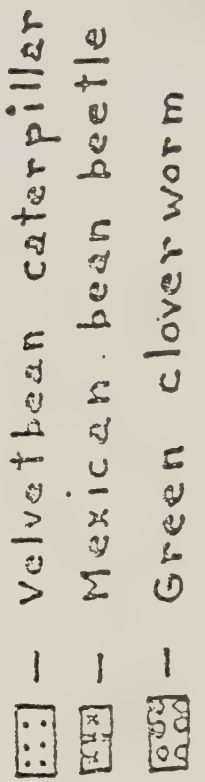 — Velvetbean caterpillar
— Mexican bean beetle
— Green cloverworm